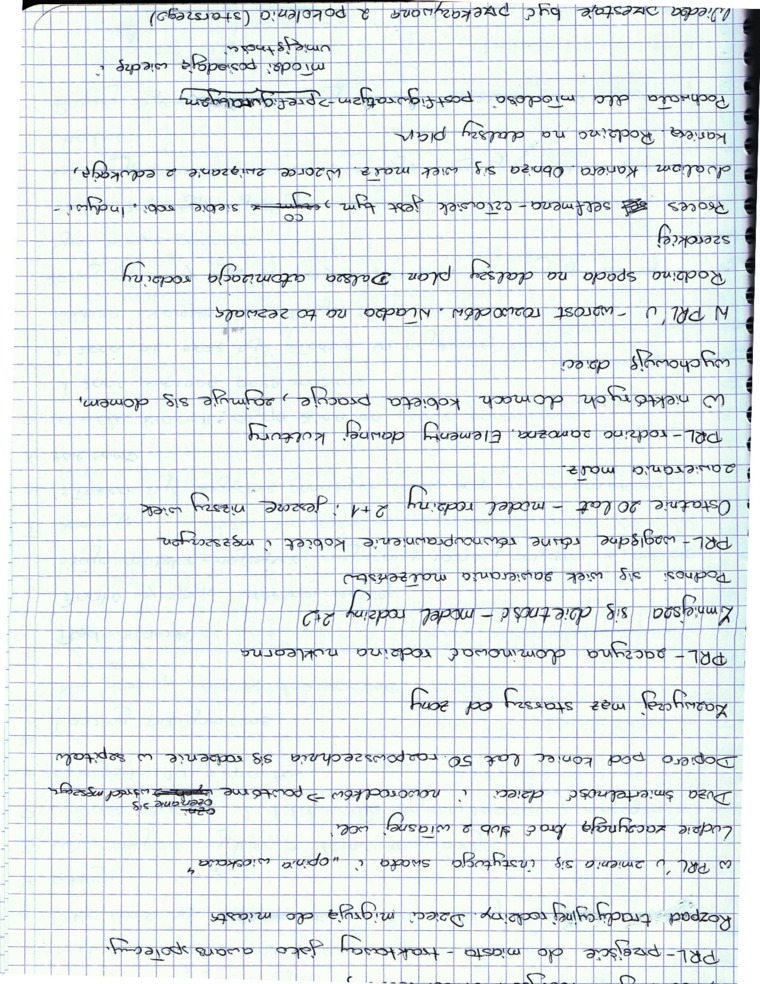 PRL - przejście do miasta - traktasay jako awans społeczny.
Rozpad tradycyjnej rodziny. Dzieci migrują do miasta
w PRL'u zmienia się instytucja swata i „opinia wioskasa"
Ludzie zaczynają brać ślub z własnej woli
Duża śmiertelność dzieci i noworodków → powtórne ożenianie się wśród mężczyzn
Dopiero pod koniec lat 50. rozpowszechnia się rodzenie w szpitalu
Zazwyczaj mąż starszy od żony
PRL - zaczyna dominować rodzina nuklearna
Zmniejsza się dzietność - model rodziny 2+2
Podnosi się wiek zawierania małżeństw
PRL - względne równe równouprawnienie kobiet i mężczyzn
Ostatnie 20 lat - model rodziny 2+1 i jeszcze niższy wiek
zawierania małż.
PRL - rodzina zamożna. Elementy dawnej kultury
W niektórych domach kobieta pracuje, zajmuje się domem,
wychowuje dzieci
W PRL'u - wzrost rozwodów. Władza na to zezwala
Rodzina spada na dalszy plan Dalsza atomizacja rodziny
szerokiej
Proces selfmena - człowiek jest tym, co z siebie robi. Indywi-
dualizm Kariera. Obniża się wiek małż. Wzorce związanie z edukacją,
karierą. Rodzina na dalszy plan
Pochwała dla młodości postfiguratyzm → prefiguratyzm
młodzi posiadają wiedzę i
umiejętności
Wiedza przestaje być przekazywana z pokolenia (starszego)